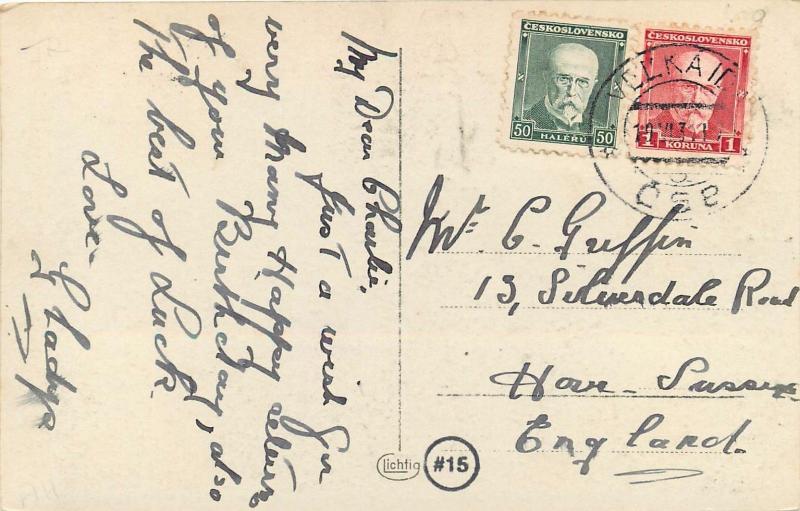 My Dear Charlie,
Just a wish for
very many Happy returns
of your Birthday, also
The best of Luck
Love.
Gladys
ČESKOSLOVENSKO
50 HALÉŘŮ 50
ČESKOSLOVENSKO
1 KORUNA 1
VELKÁ
ČSR
Mr C. Griffin
13, Silverdale Road
Hove - Sussex
England.
Lichtig
#15